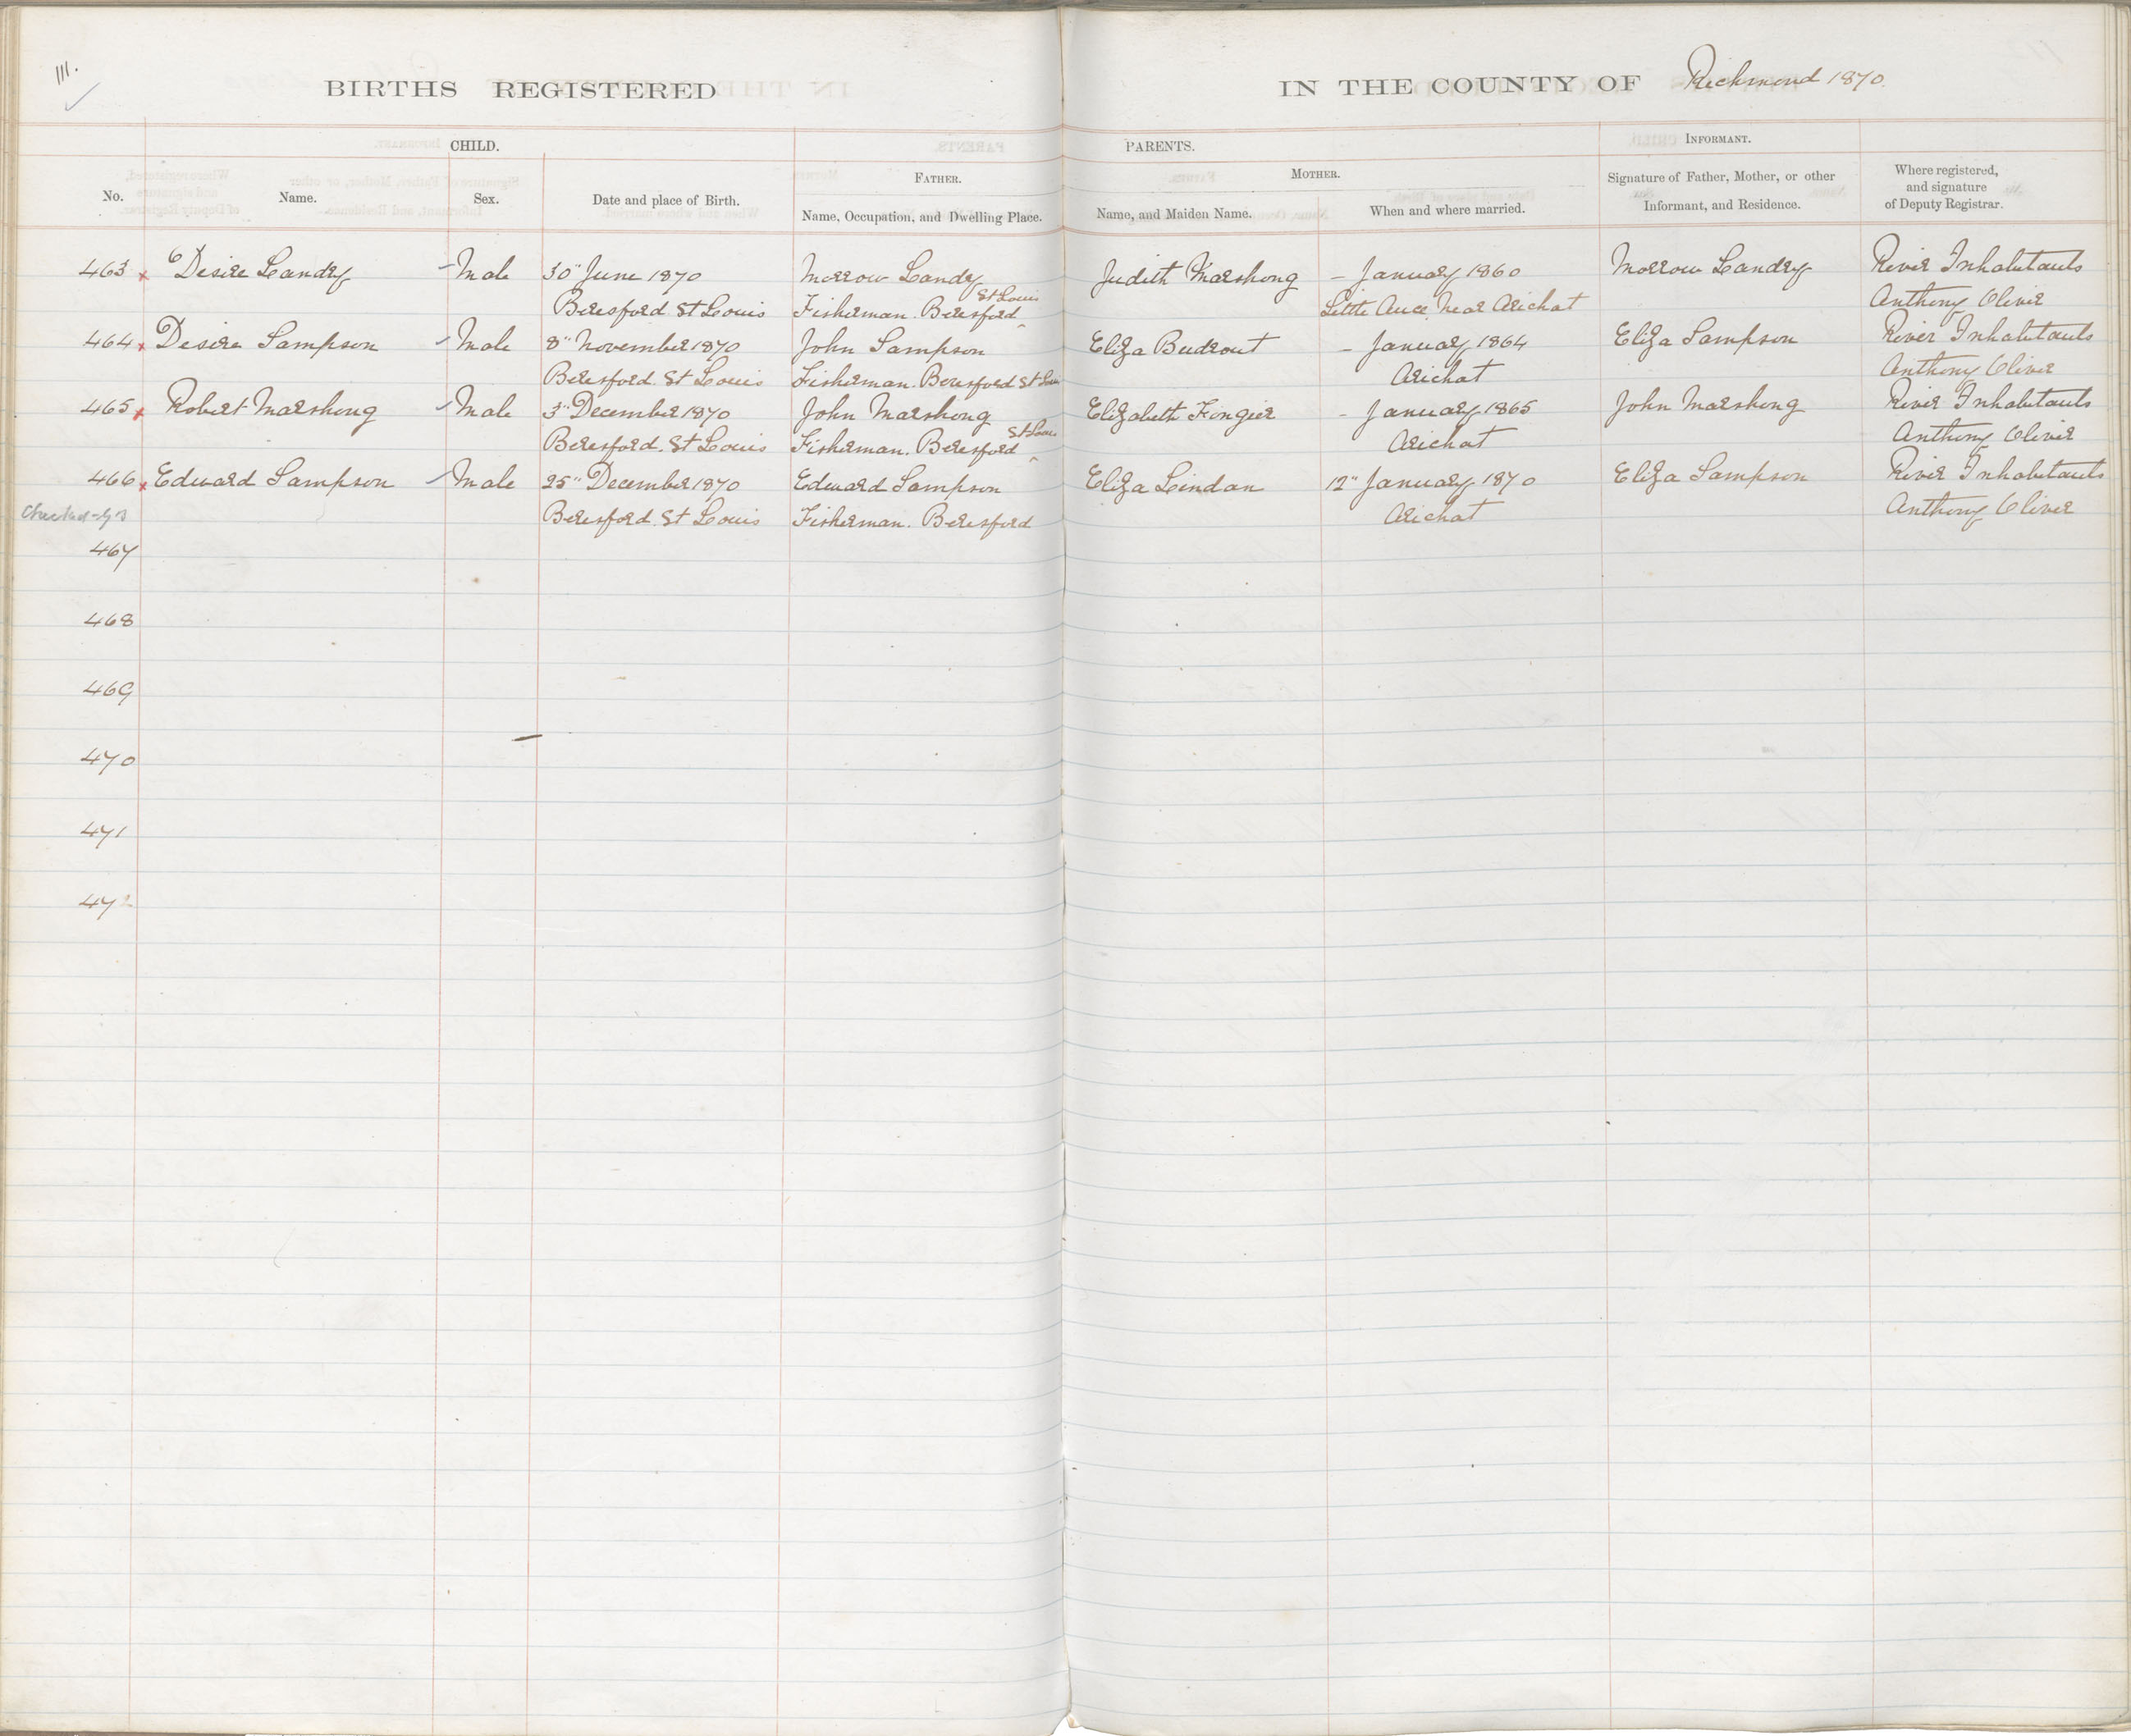 111.
BIRTHS REGISTERED IN THE COUNTY OF Richmond 1870.
CHILD. PARENTS. INFORMANT.
No. Name. Sex. Date and place of Birth. FATHER. Name, Occupation, and Dwelling Place. MOTHER. Name, and Maiden Name. When and where married. Signature of Father, Mother, or other Informant, and Residence. Where registered, and signature of Deputy Registrar.
463 x Desire Landry Male 30" June 1870 Morrow Landry Judith Marshong – January 1860 Morrow Landry River Inhabitants
Beresford St Louis Fisherman. Beresford St Louis Little Ance Near Arichat Anthony Oliver
464 x Desire Sampson Male 8" November 1870 John Sampson Eliza Budrout – January 1864 Eliza Sampson River Inhabitants
Beresford. St Louis Fisherman. Beresford St Louis Arichat Anthony Oliver
465 x Robert Marshong Male 3" December 1870 John Marshong Elizabeth Fongier – January 1865 John Marshong River Inhabitants
Beresford. St Louis Fisherman. Beresford St Louis Arichat Anthony Oliver
466 x Edward Sampson Male 25" December 1870 Edward Sampson Eliza Lindan 12" January 1870 Eliza Sampson River Inhabitants
Checked Beresford. St Louis Fisherman. Beresford Arichat Anthony Oliver
467
468
469
470
471
472